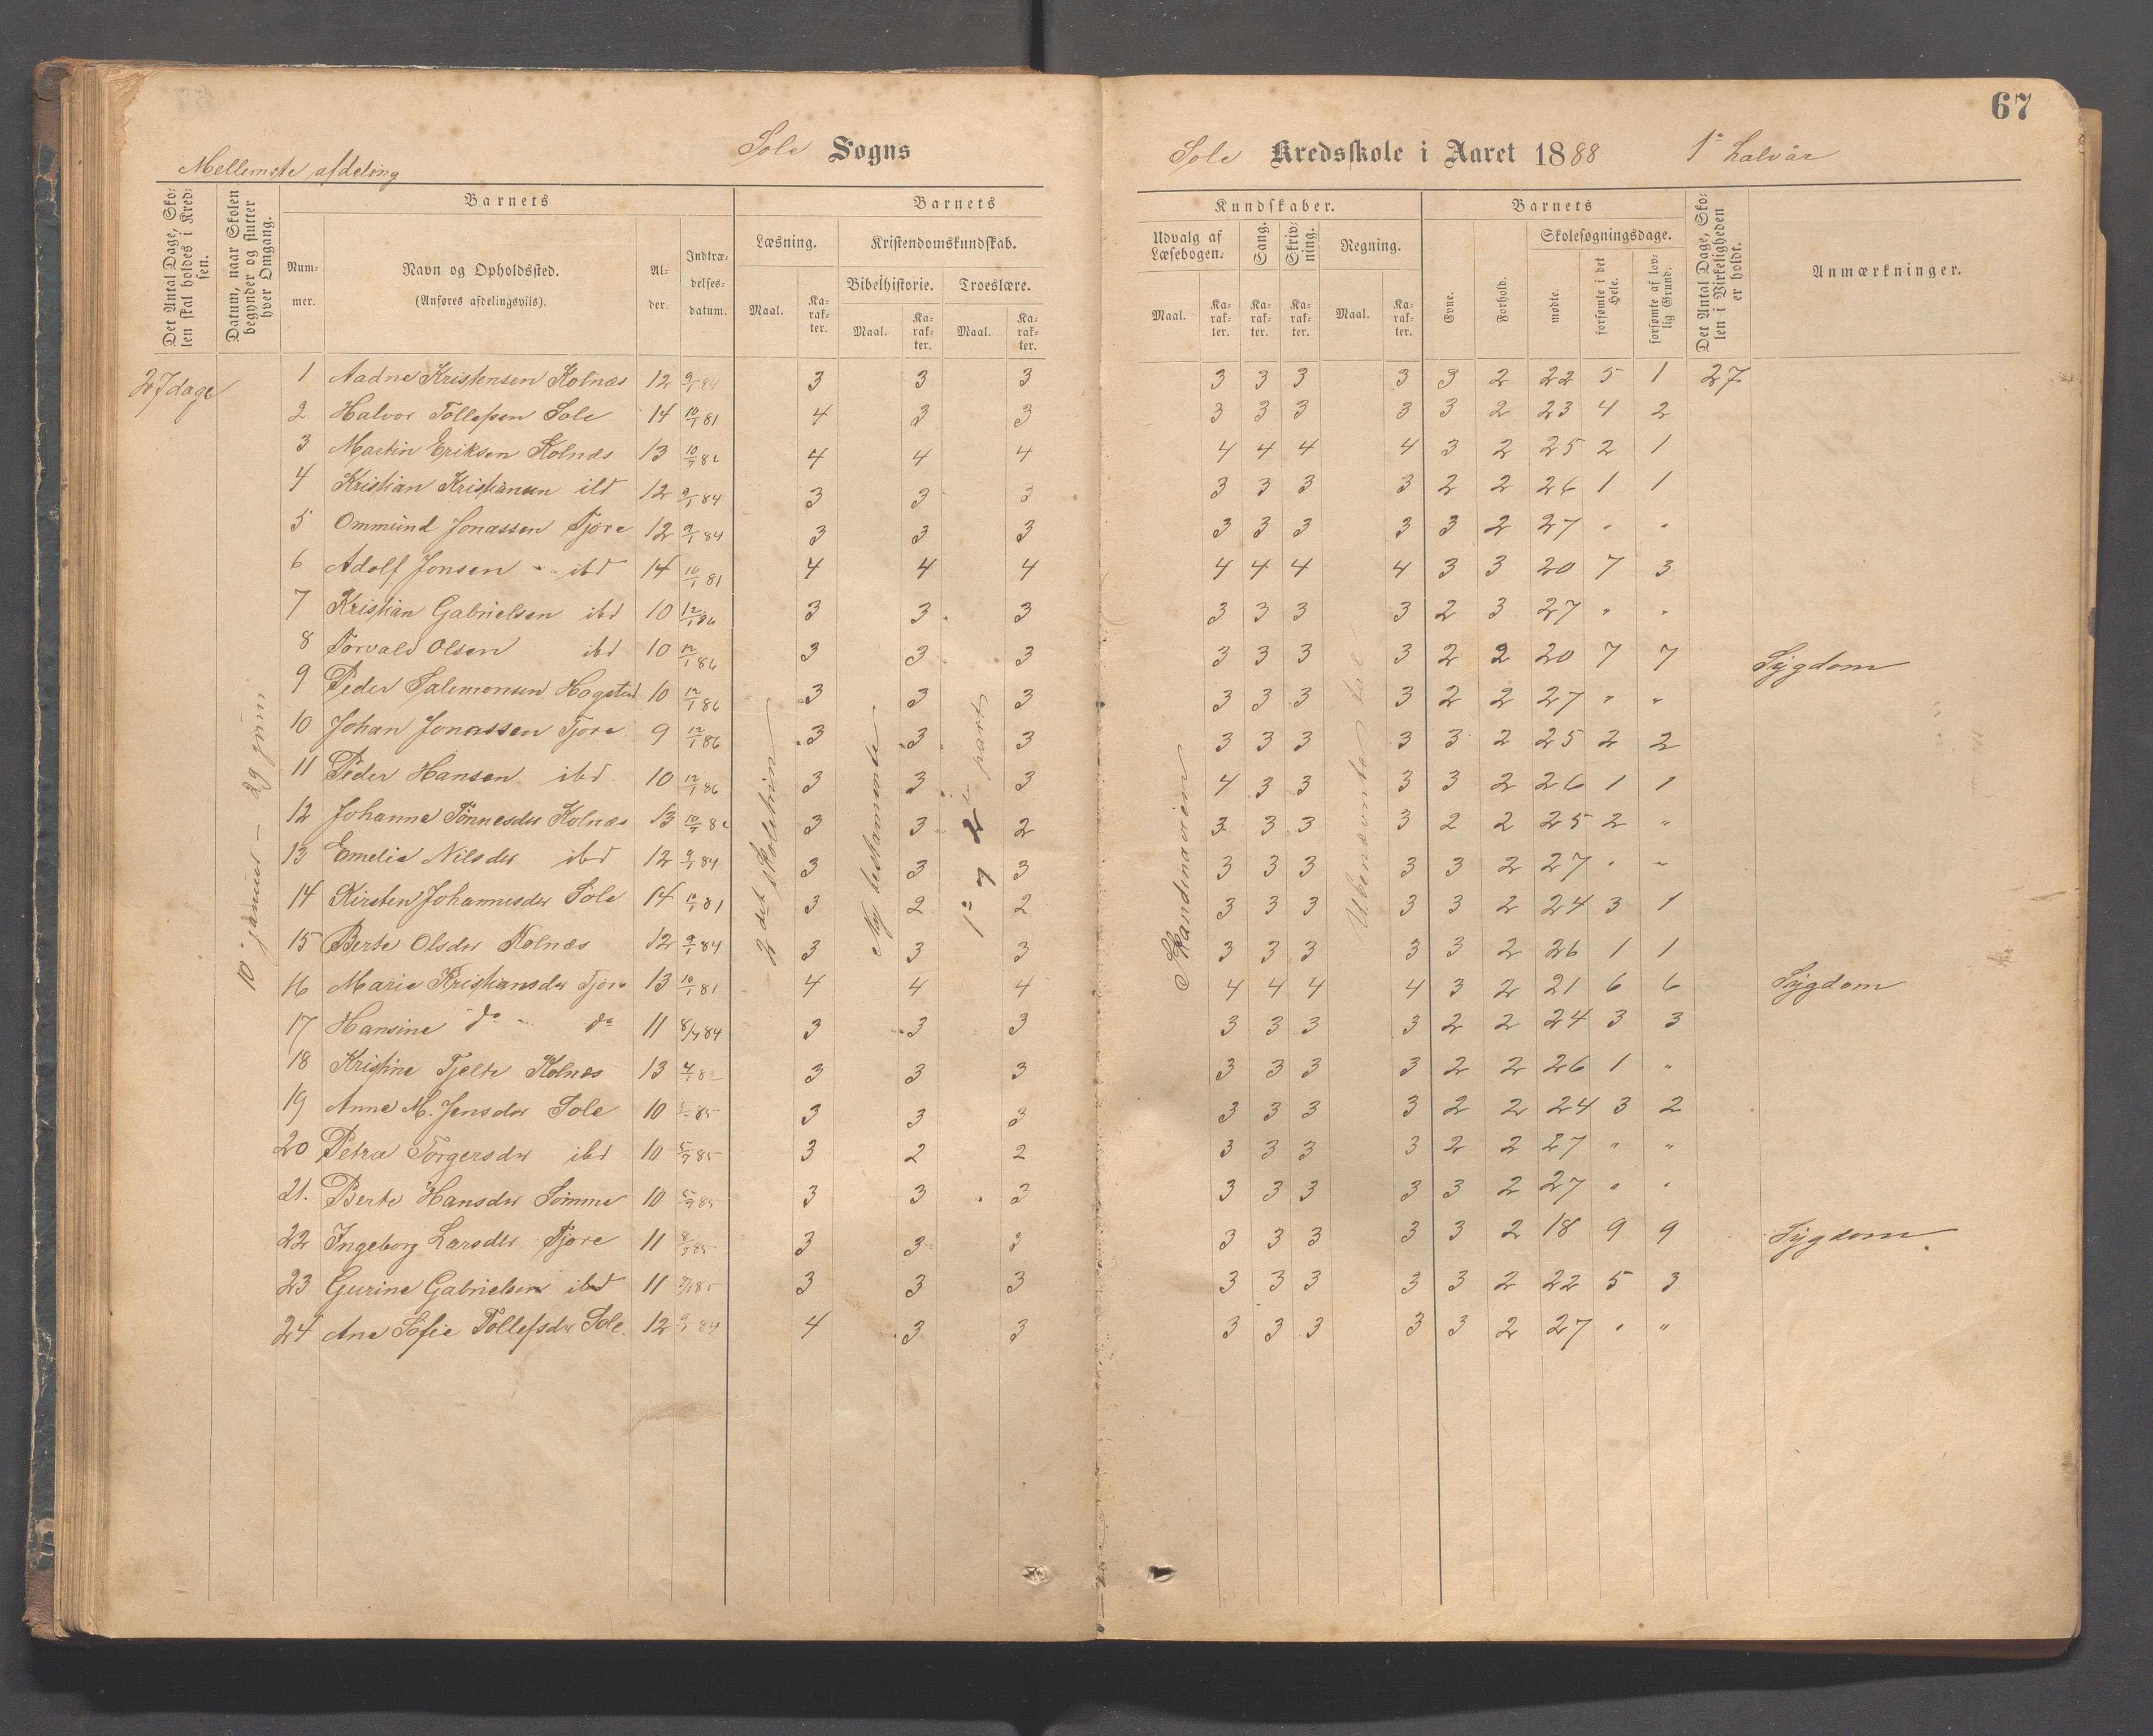 67
Mellemste afdeling
Sole Sogns
Sole Kredsskole i Aaret 1888 1ste halvår
Det Antal Dage, Skolen skal holdes i Kredsen.
Datum, naar Skolen begynder og slutter hver Omgang.
Barnets
Barnets
Kundskaber.
Barnets
Det Antal Dage, Skolen i Virkeligheden er holdt.
Anmærkninger.
Nummer.
Navn og Opholdssted.
(Anføres afdelingsviis).
Alder.
Indtrædelsesdatum.
Læsning.
Kristendomskundskab.
Bibelhistorie.
Troeslære.
Udvalg af Læsebogen.
Sang.
Skrivning.
Regning.
Evne.
Forhold.
Skolesøgningsdage.
mødte.
forsømte i det Hele.
forsømte af lovlig Grund.
Maal. Karakter. Maal. Karakter. Maal. Karakter.
Maal. Karakter. Karakter. Karakter. Maal. Karakter.
27 dage
10 januar – 29 juni
2det skoletrin
Ny testamente
Skandinavien
Ubenævnte tal
1 Aadne Kristensen Kolnæs 12 9/1 84 3 3 3 3 3 3 3 3 2 22 5 1 27
2 Halvor Tollefsen Sole 14 10/1 81 4 3 3 3 3 3 3 3 2 23 4 2
3 Martin Eriksen Kolnæs 13 10/7 82 4 4 4 4 4 4 4 3 2 25 2 1
4 Kristian Kristiansen ibd 12 9/1 84 3 3 3 3 3 3 3 2 2 26 1 1
5 Ommund Jonassen Tjore 12 9/1 84 3 3 3 3 3 3 3 3 2 27 " "
6 Adolf Jonsen - ibd 14 10/1 81 4 4 4 4 4 4 4 3 3 20 7 3
7 Kristian Gabrielsen ibd 10 12/1 86 3 3 3 3 3 3 3 2 3 27 " "
8 Torvald Olsen ibd 10 12/1 86 3 3 3 3 3 3 3 2 2 20 7 7 Sygdom
9 Peder Salemonsen Hogstad 10 12/1 86 3 3 3 3 3 3 3 2 2 27 " "
10 Johan Jonassen Tjore 9 12/1 86 3 3 3 3 3 3 3 3 2 25 2 2
11 Peder Hansen ibd 10 12/1 86 3 3 3 4 3 3 3 3 2 26 1 1
12 Johanne Tönnesdtr Kolnæs 13 10/7 82 3 3 2 3 3 3 3 2 2 25 2 "
13 Emelie Nilsdtr ibd 12 9/1 84 3 3 3 3 3 3 3 3 2 27 " "
14 Kirsten Johannesdtr Sole 14 10/1 81 3 2 2 3 3 3 3 3 2 24 3 1
15 Berte Olsdtr Kolnæs 12 9/1 84 3 3 3 3 3 3 3 3 2 26 1 1
16 Marie Kristiansdtr Tjore 13 10/1 81 4 4 4 4 4 4 4 3 2 21 6 6 Sygdom
17 Hansine do - do 11 8/7 84 3 3 3 3 3 3 3 2 2 24 3 3
18 Kristine Tjelte Kolnæs 13 4/1 82 3 3 3 3 3 3 3 2 2 26 1 "
19 Anne M. Jensdtr Sole 10 85 3 3 3 3 3 3 3 2 2 24 3 2
20 Petra Torgersdtr ibd 10 5/7 85 3 2 2 3 3 3 3 2 2 27 " "
21. Berte Hansdtr Sömme 10 5/9 85 3 3 3 3 3 3 3 3 2 27 " "
22 Ingeborg Larsdtr Tjore 11 8/7 85 3 3 3 3 3 3 3 3 2 18 9 9 Sygdom
23 Gurine Gabrielsen ibd 11 85 3 3 3 3 3 3 3 3 2 22 5 3
24 Ane Sofie Tollefsdtr Sole. 12 9/1 84 4 3 3 3 3 3 3 3 2 27 " "